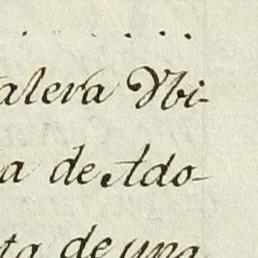 alera Ybi-
a de Ado-
ta de una